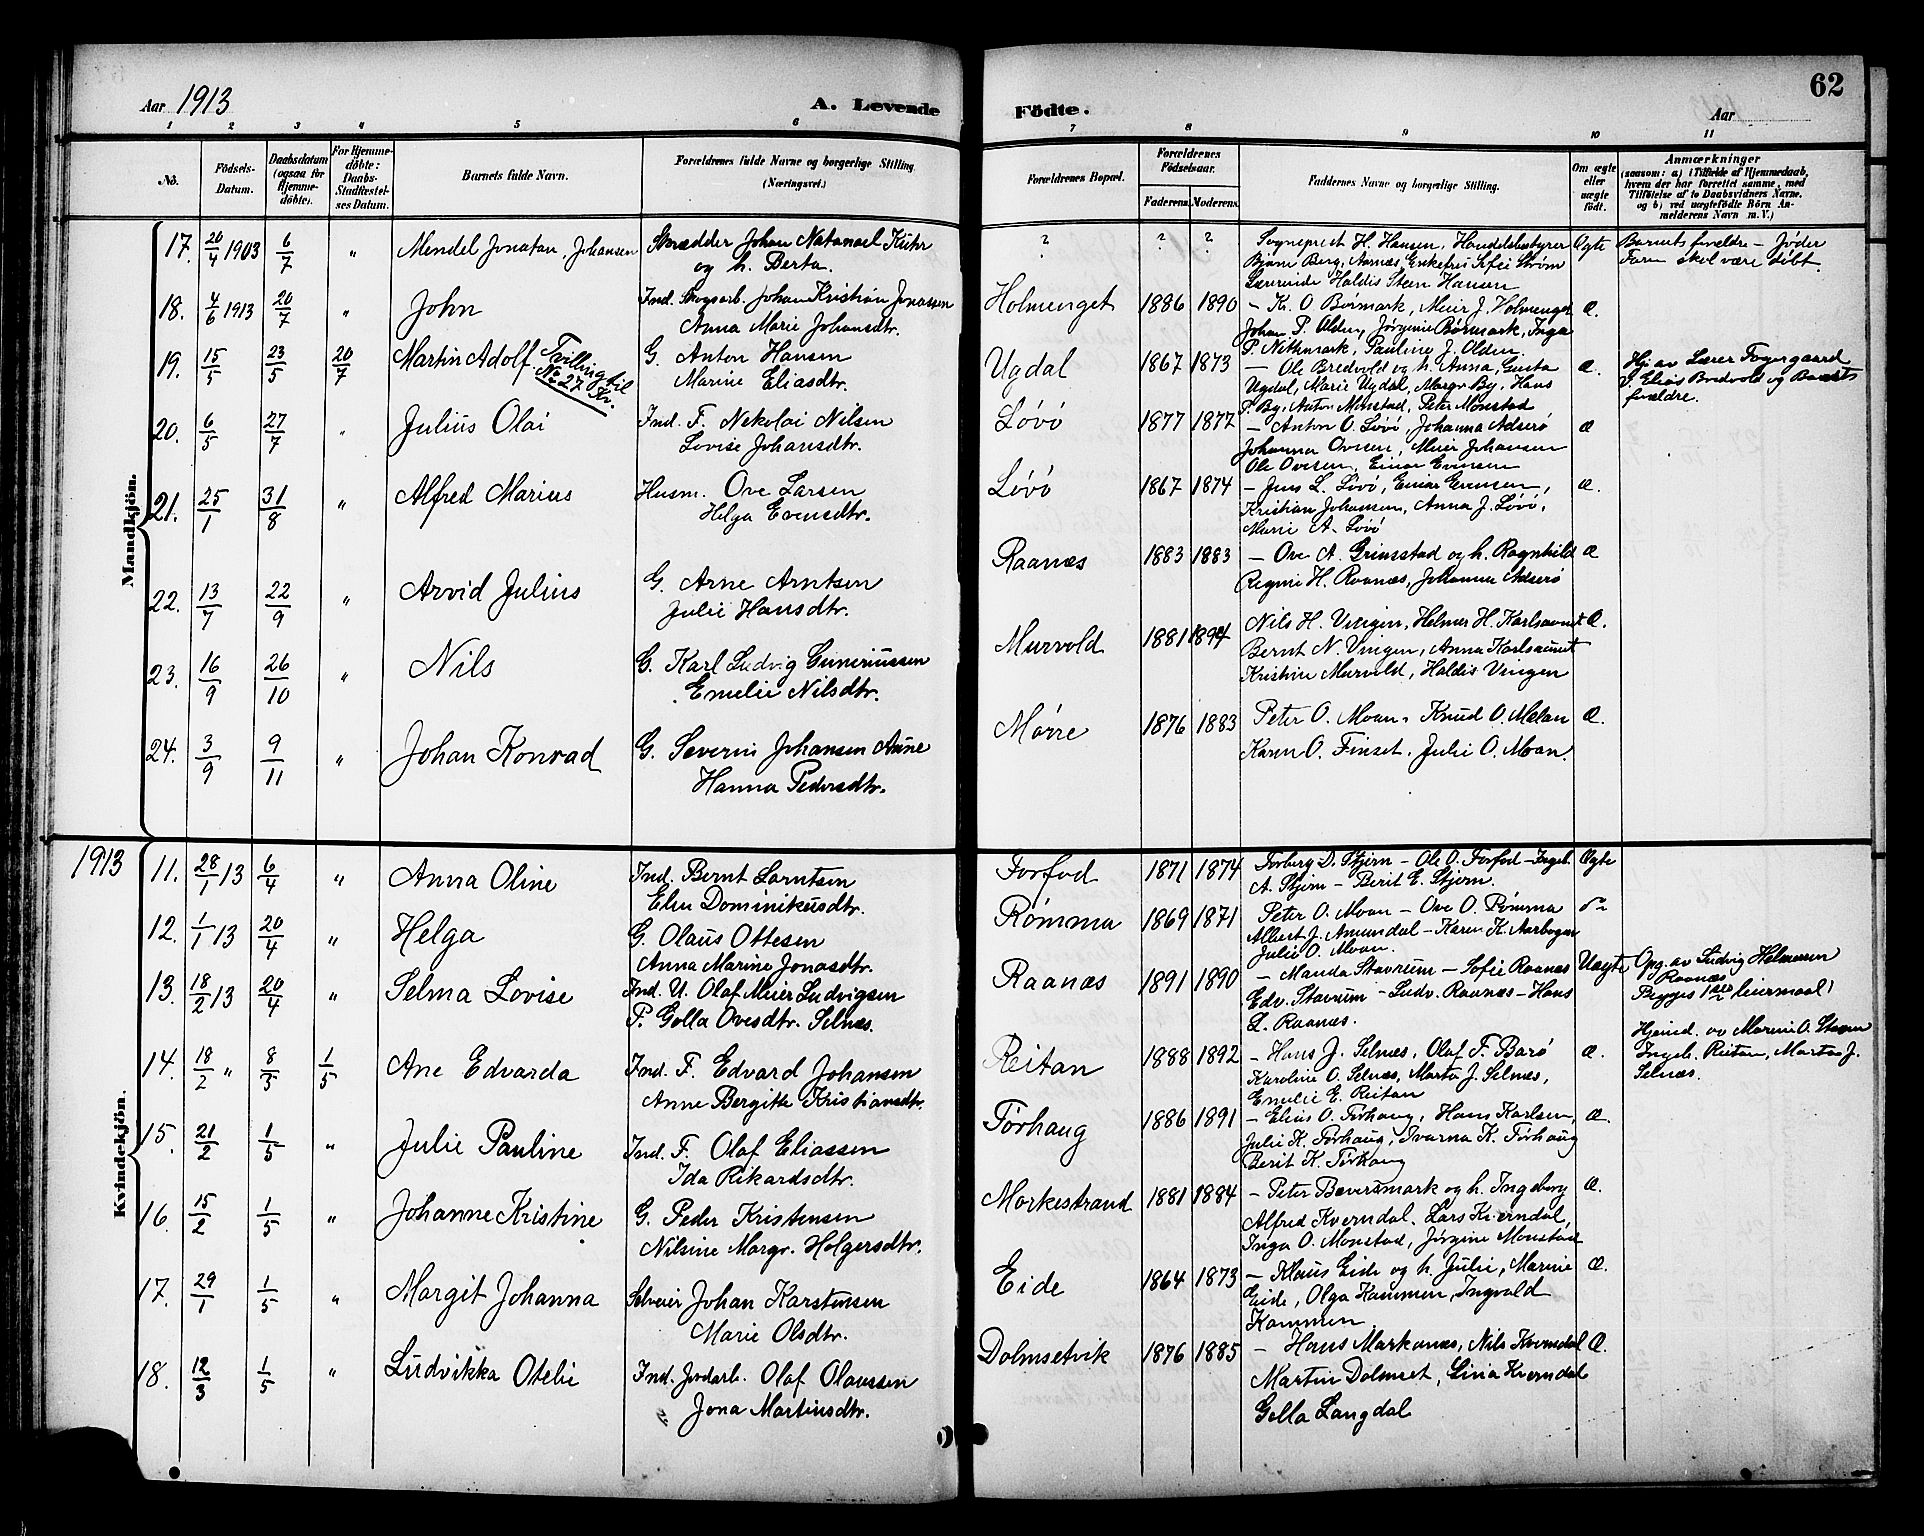 Aar 1913
A. Levende
Födte.
Aar
62
1 2 3 4 5 6 7 8 9 10 11
No.
Födsels-Datum.
Daabsdatum (ogsaa for Hjemme-döbte).
For Hjemme-döbte: Daabs-Stadfæstel-ses Datum.
Barnets fulde Navn.
Forældrenes fulde Navne og borgerlige Stilling. (Næringsvei.)
Forældrenes Bopæl.
Forældrenes Födselsaar.
Faderens. Moderens.
Faddernes Navne og borgerlige Stilling.
Om ægte eller uægte födt.
Anmærkninger
(saasom: a) i Tilfælde af Hjemmedaab, hvem der har forrettet samme, med Tilföielse af to Daabsvidners Navne, og b) ved uægtefödte Börn An-melderens Navn m. V.)
Mandkjön.
17. 20/4 1903 6/7 " Mendel Jonatan Johansen
Skrædder Johan Natanael Kuhr
og h. Berta.
? ? ?
Sogneprest H. Hansen, Handelsbestyrer
Bjarne Berg, Aarnæs, Enkefru Sofie Strøm
Lærerinde Haldis Steen Hansen
Ægte
Barnets forældre – Jøder
Faren skal være døbt.
18. 4/6 1913 20/7 " John
Ind. Skogsarb. Johan Kristian Jonassen
Anna Marie Johansdtr.
Holmenget 1886 1890
– Kr. O. Børmark, Meier J. Holmenget
Johan P. Olden, Jørginie Børmark, Inga
P. Nithmark, Pauline J. Olden.
Æ.
19. 15/5 23/5 20/7 Martin Adolf Tvilling til No 27 Kv.
G. Anton Hansen
Marine Eliasdtr.
Ugdal 1867 1873
– Ole Bredvold og h. Anna, Gusta
Ugdal, Marie Ugdal, Margr. By, Hans
P. By, Anton Monstad, Peter Monstad
Æ.
Hj. av Lærer Fagergaard
V. Elias Bredvold og Barnets
forældre.
20. 6/5 27/7 " Julius Olai
Ind. F. Nekolai Nilsen
Lovise Johansdtr.
Løvø 1877 1877
– Anton O. Løvø, Johanna Adserø
Johanna Ovesen, Meier Johansen
Ole Ovesen, Einar Evensen
Æ
21. 25/1 31/8 " Alfred Marius
Husm. Ove Larsen
Helga Evensdtr.
Løvø 1867 1874
– Jens L. Løvø, Einar Evensen,
Kristian Johansen, Anna J. Løvø,
Marie A. Løvø
Æ.
22. 13/7 22/9 " Arvid Julius
G. Arne Arntsen
Julie Hansdtr.
Raanæs 1883 1883
– Ove A. Grinsstad og h. Ragnhild
Regine H. Raanæs, Johanna Adserø
Æ
23. 16/9 26/10 " Nils
G. Karl Ludvig Guneriussen
Emelie Nilsdtr.
Murvold 1881 1894
Nils H. Vingen, Helmer H. Karlsaunet
Bernt N. Vingen, Anna Karlsaunet
Kristine Murvold, Haldis Vingen
Æ.
24. 3/9 9/11 " Johan Konrad
G. Severin Johansen Aune
Hanna Pedersdtr.
Mørre 1876 1883
Peter O. Moan, Knud O. Melan
Karen O. Finset, Julie O. Moan.
Æ.
1913
Kvindekjön.
11. 28/1 13 6/4 " Anna Oline
Ind. Bernt Larntsen
Elen Dominikusdtr.
Forfod 1871 1874
Torberg D. Stjern – Ole O. Forfod – Ingeb.
A. Stjern – Berit E. Stjern.
Ægte
12. 1/1 13 20/4 " Helga
G. Olaus Ottesen
Anna Marine Jonasdtr.
Rømma 1869 1871
Peter O. Moan – Ove O. Rømma
Albert J. Amundal – Karen K. Aarbogen
Julie O. Moan.
13. 18/2 13 20/4 " Selma Lovise
Ind. U. Olaf Meier Ludvigsen
P. Golla Ovesdtr. Selnæs.
Raanæs 1891 1890
– Manda Stavrum – Sofie Raanæs
Edv. Stavrum – Ludv. Raanæs – Hans
L. Raanæs.
Uægte
Opg. av Ludvig Helmersen
Raanæs
Begges 1ste leiermaal!
14. 18/2 " 8/3 1/5 Ane Edvarda
Ind. F. Edvard Johansen
Anne Bergitte Kristiansdtr.
Reitan 1888 1892
– Hans J. Selnæs, Olaf F. Barø
Karoline O. Selnæs, Marta J. Selnæs,
Emelie E. Reitan
Æ.
Hjemd. av Marin O. Staven
Ingeb. Reitan, Marta J.
Selnæs.
15. 21/2 1/5 " Julie Pauline
Ind. F. Olaf Eliassen
Ida Rikardsdtr.
Tørhaug 1886 1891
– Elias O. Tørhaug, Hans Karlsen,
Julie K. Tørhaug, Ivarna K. Tørhaug
Berit K. Tørhaug
Æ.
16. 15/2 1/5 " Johanne Kristine
G. Peder Kristensen
Nilsine Margr. Holgersdtr.
Morkestrand 1881 1884
– Peter Bæversmark og h. Ingeborg
Alfred Kverndal, Lars Kverndal,
Inga O. Monstad, Jørgine Monstad
Æ.
17. 29/1 1/5 " Margit Johanna
Selveier Johan Karstensen
Marie Olsdtr.
Eide 1864 1873
– Klaus Eide og h. Julie, Marine
Eide, Olga Kammen, Ingvald
Kammen.
Æ.
18. 12/3 1/5 " Ludvikka Otelie
Ind. Jordarb. Olaf Olaussen
Jona Martinsdtr.
Dolmsetvik 1876 1885
– Hans Markanæs, Nils Kverndal
Martin Dolmset, Lina Kverndal
Golla Langdal
Æ.